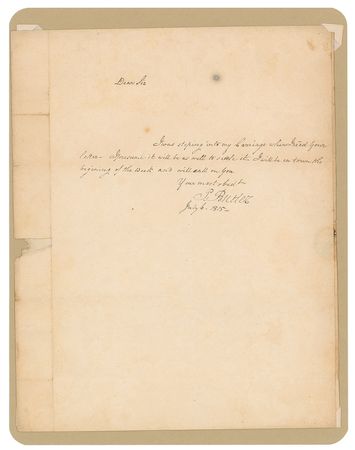 Dear Sir
I was steping into my Carriage when I recd Your
letter - I presume it will be as well to settle it. I will be in town the
begining of the Week and will call on you
Your most obed t
July 6. 1815 -